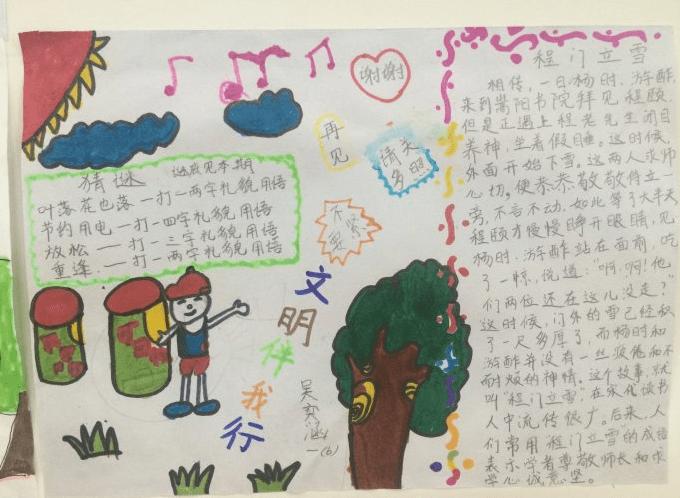 谢谢
再见
请关
多照
不要
紧
猜谜 谜底见本期
叶落花也落—打一两字礼貌用语
节约用电—打一四字礼貌用语
放松—打一三字礼貌用语
重逢—打一两字礼貌用语
文明伴我行
吴奕涵
一(6)
程门立雪
相传，一日杨时、游酢，
来到嵩阳书院拜见程颐，
但是正遇上程老先生闭目
养神，坐着假睡。这时候，
外面开始下雪。这两人求师
心切，便恭恭敬敬侍立一
旁，不言不动，如此等了大半天，
程颐才慢慢睁开眼睛，见
杨时、游酢站在面前，吃
了一惊，说道：“啊，啊！他
们两位还在这儿没走？”
这时候，门外的雪已经积
了一尺多厚了，而杨时和
游酢并没有一丝疲倦和不
耐烦的神情。这个故事，就
叫“程门立雪”在宋代读书
人中流传很广。后来，人
们常用“程门立雪”的成语
表示学者尊敬师长和求
学心诚意坚。